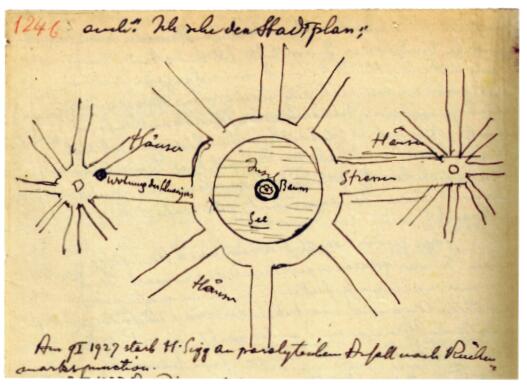 1246
auch: Ich sehe den Stadtplan:
Häuser
Häuser
Wohnung des Schweizers
Insel
Baum
Strassen
See
Häuser
Am 9 I 1927 starb H. Sigg an paralytischem Anfall nach Rücken-
markspunction.